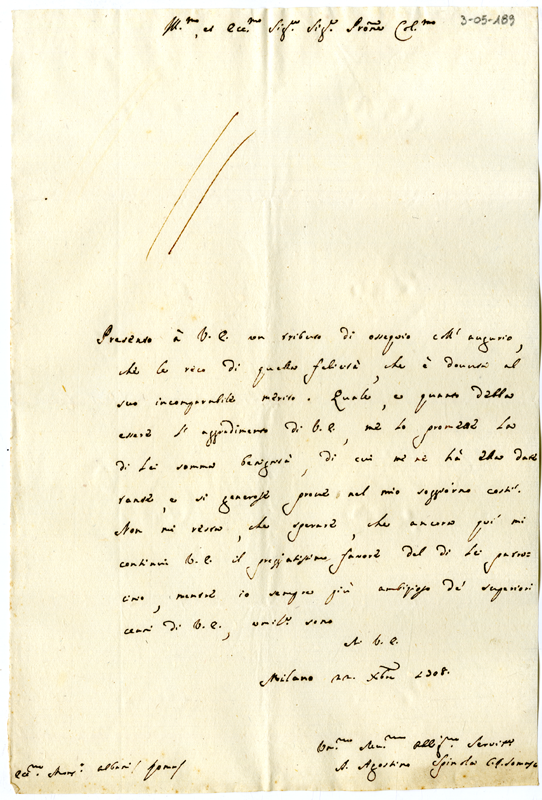 3-05-189
Ill.mo, et Ecc.mo Sig.r Sig.r Pron̄e Col.mo
Presento à V. E. un tributo di ossequio coll' augurio,
che le reco di quella felicità, che è dovuta al
suo incomparabile merito. Quale, e quanto debba
essere il aggradimento di V. E., me lo promette la
di Lei somma benignità, di cui me ne hà ella date
tante, e si generose prove nel mio soggiorno costì.
Non mi resta, che sperare, che ancora quì mi
continui V. E. il pregiatissimo favore del di Lei patro-
cinio, mentre io sempre più ambizioso de' superiori
cenni di V. E., umil.te sono
Di V. E.
Milano 22. Xbre 1708.
Um.mo Dev.mo Obb.mo Servit.re
D. Agostino Spinola C.R. Somasco
Ecc.mo Mons.r Albani Roma